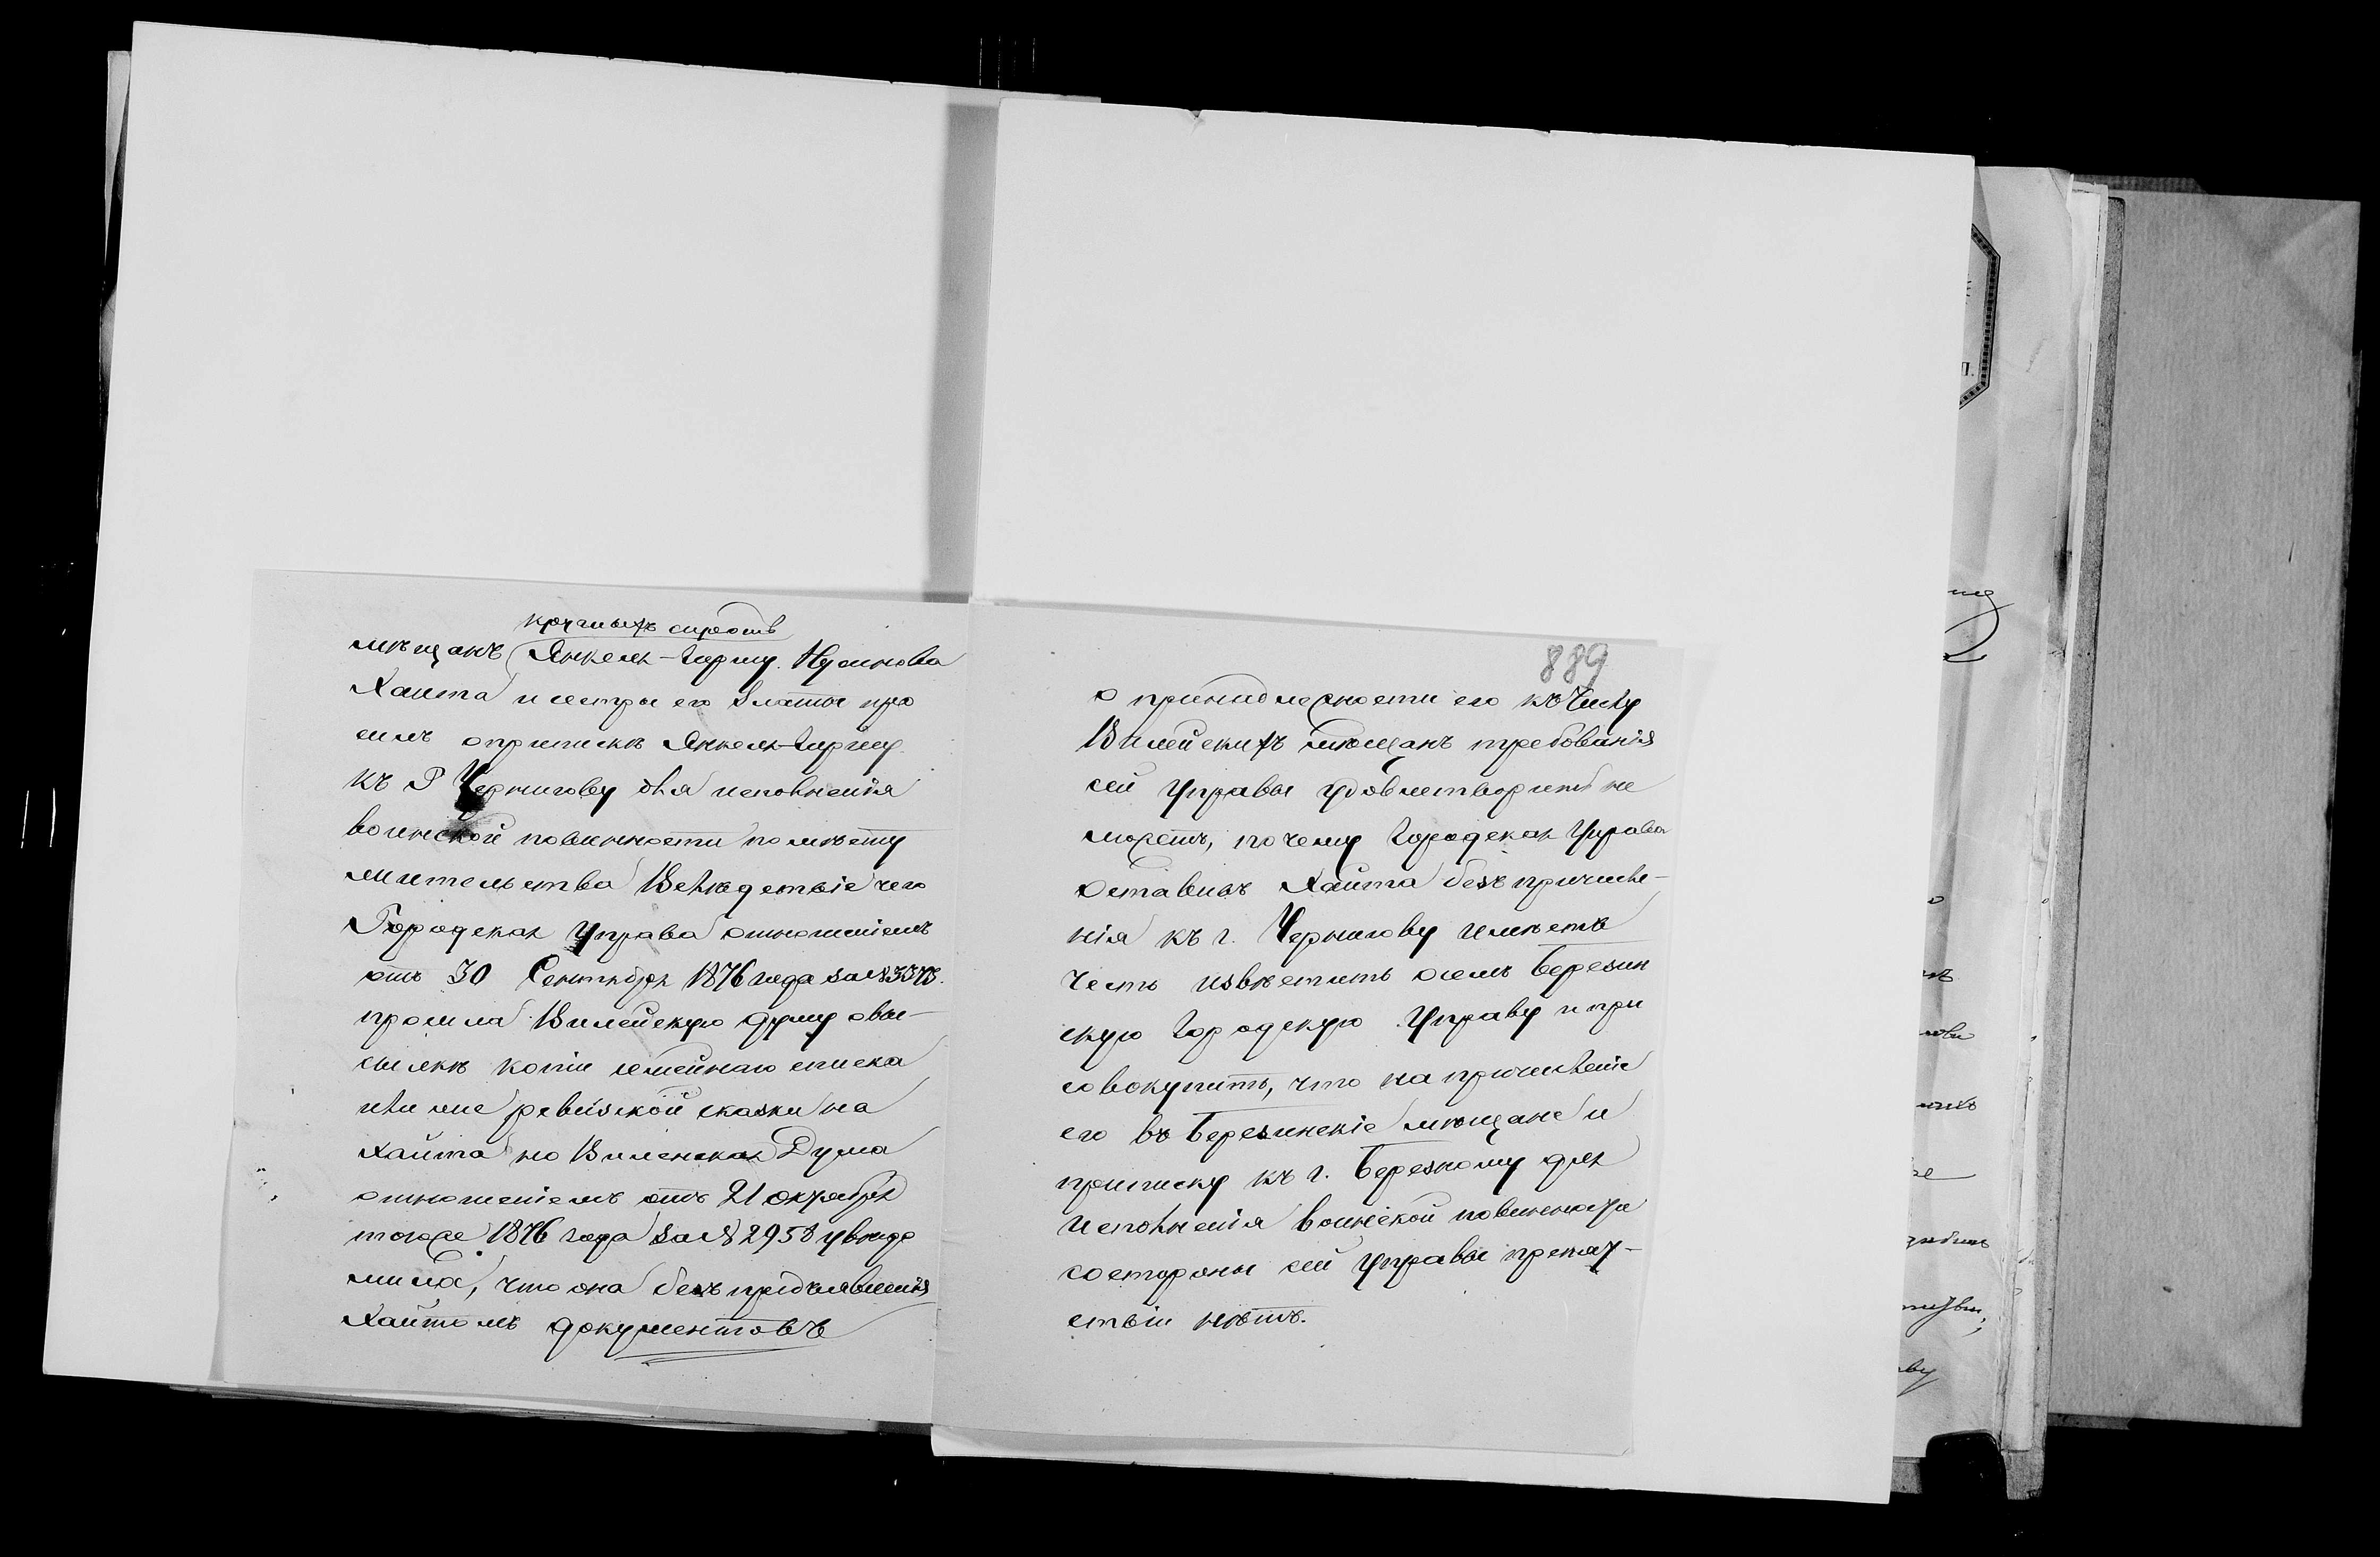 круглыхъ сиротъ
мѣщанъ Янкеля-Гирша Нусинова
Хаита и сестры его Златы про
силъ о припискѣ Янкеля-Гирша
къ г Чернигову для исполненія
воинской повинности по мѣсту
жительства Вслѣдствіе чего
Городская Управа отношеніемъ
отъ 30 Сентября 1876 года за №
просила Вилейскую Думу о вы-
сылкѣ копіи семейнаго списка
или же ревизской сказки на
Хайта но Виленская Дума
отношеніемъ отъ 21 октября
тогоже 1876 года за № 2958 увѣдо
мила, что она безъ предъявленія
Хайтомъ документовъ
889
о принадлежности его къ числу
Вилейскихъ мѣщанъ требованія
сей Управы удовлетворить не
можетъ, почему Городская Управа
оставивъ Хайта безъ причисле-
нія къ г. Чернигову имѣетъ
честь извѣстить о семъ Березин
скую Городскую Управу и при
совокупить, что на причисленіе
его въ Березинскіе мѣщане и
приписку къ г. Березному для
исполненія воинской повинности
со стороны сей Управы препят-
ствій нѣтъ.